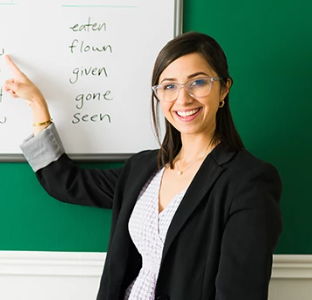 eaten
flown
given
gone
seen